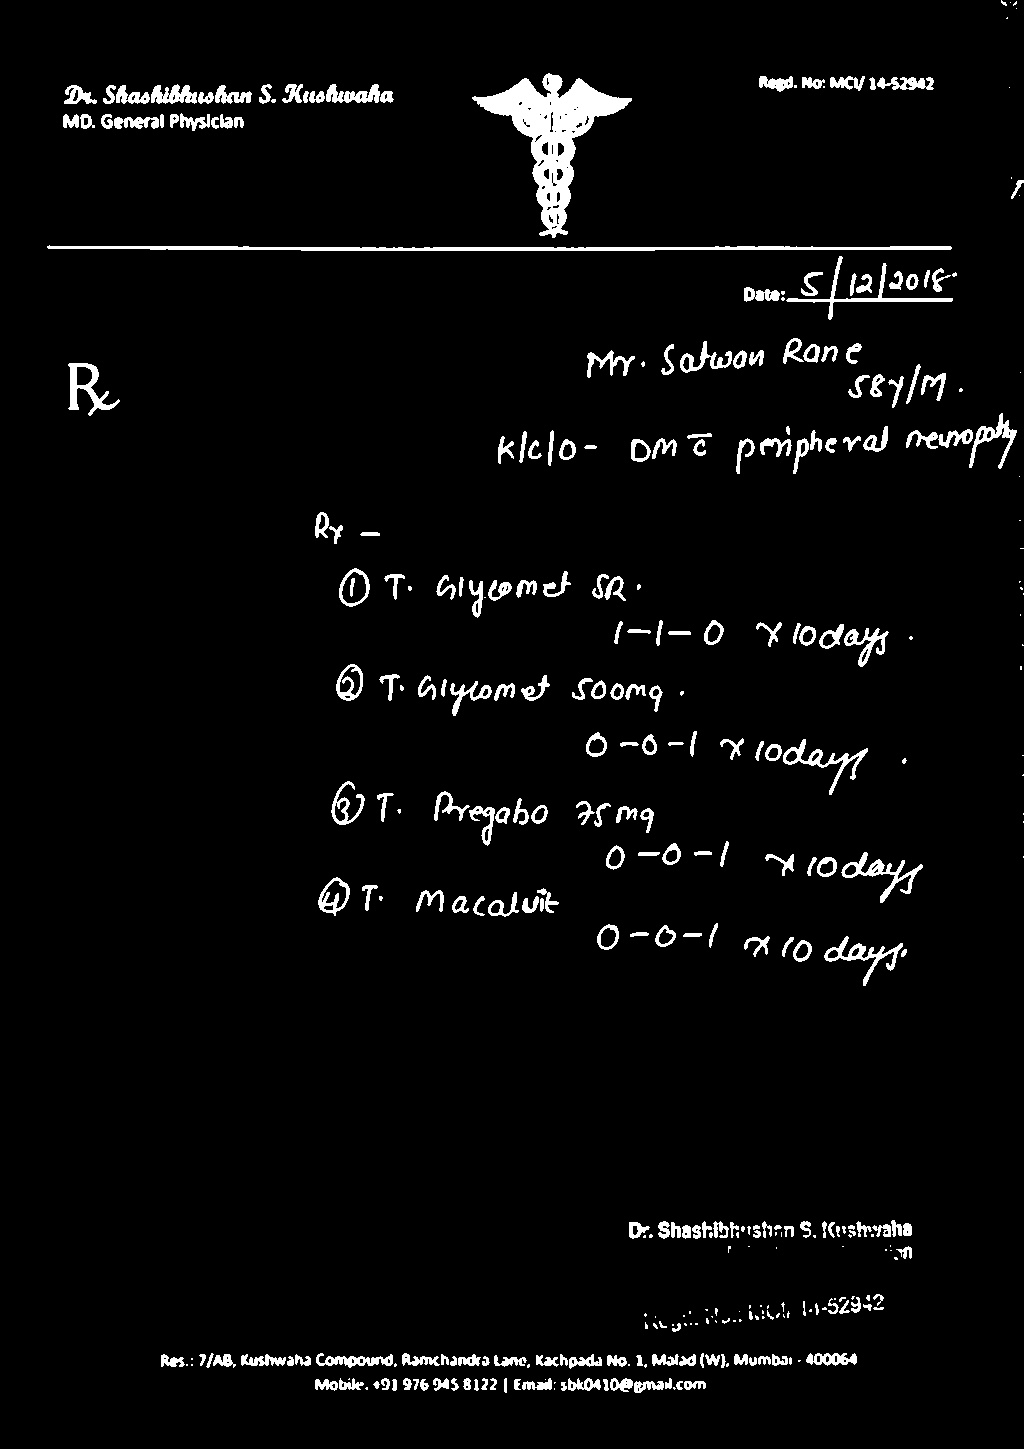 Dr. Shashibhushan S. Kushwaha
MD. General Physician
Regd. No: MCI/ 14-52942
Date: 5/12/2018
Mr. Satwan Rane
58y/M.
Rx
K/c/o - DM c̄ peripheral neuropathy
Rx -
① T. Glycomet SR.
1-1-0 x 10days.
② T. Glycomet 500mg.
0-0-1 x 10days.
③ T. Pregabo 75mg
0-0-1 x 10days
④ T. Macalvit
0-0-1 x 10 days.
Dr. Shashibhushan S. Kushwaha
14-52942
Res.: 7/AB, Kushwaha Compound, Ramchandra Lane, Kachpada No. 1, Malad (W), Mumbai - 400064
Mobile. +91 976 945 8122 | Email: sbk0410@gmail.com